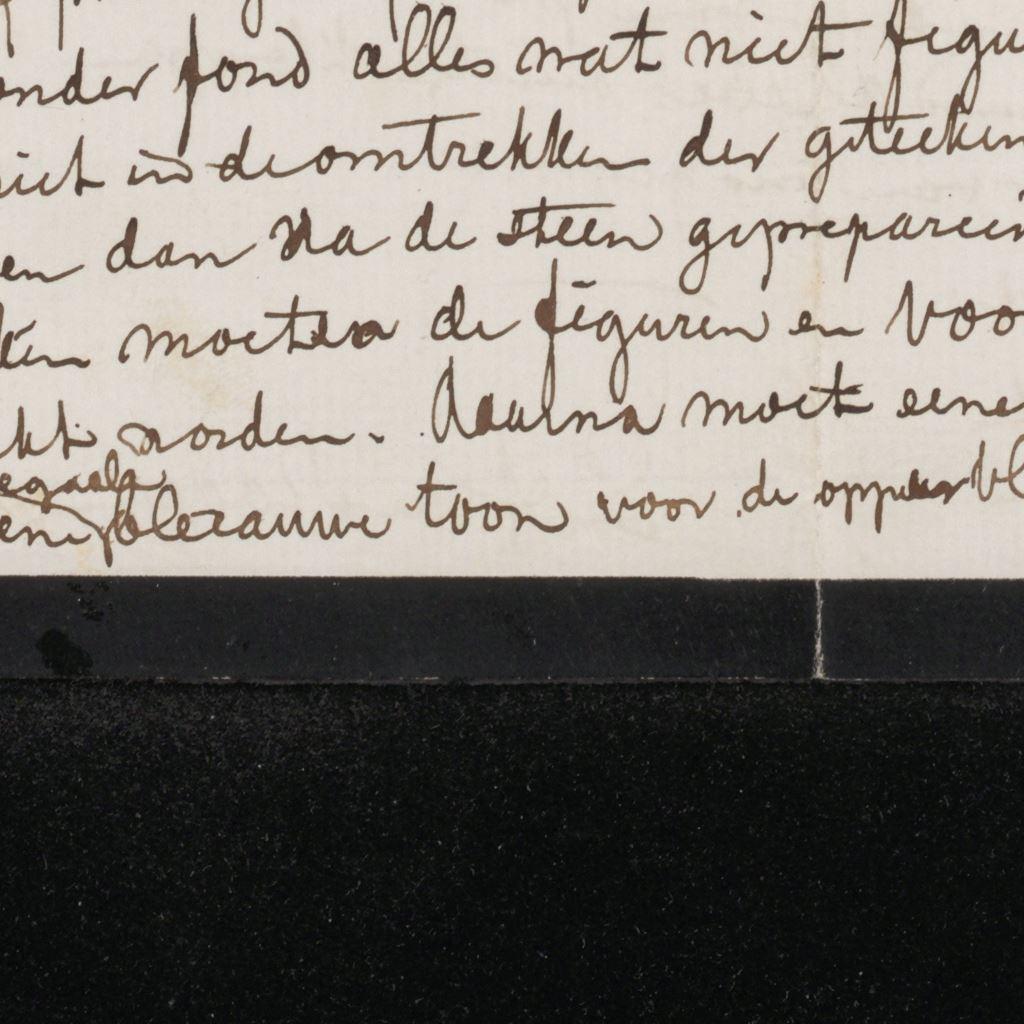 onder fond alles wat niet figu
niet in de omtrekken der geteeken
en dan Na de steen geprepareer
moeten de figuren en voo
kt worden. Daarna moet eene
egaale
blezauwe toon voor de oppervl